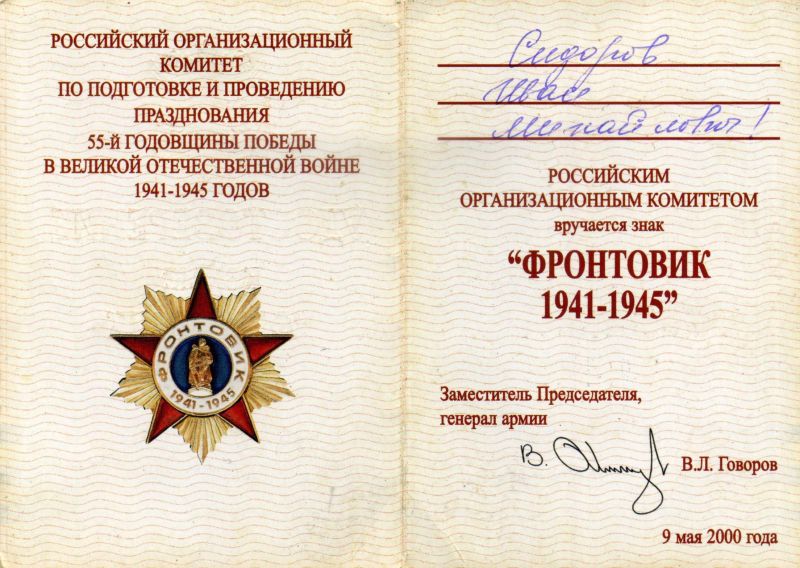 РОССИЙСКИЙ ОРГАНИЗАЦИОННЫЙ
КОМИТЕТ
ПО ПОДГОТОВКЕ И ПРОВЕДЕНИЮ
ПРАЗДНОВАНИЯ
55-й ГОДОВЩИНЫ ПОБЕДЫ
В ВЕЛИКОЙ ОТЕЧЕСТВЕННОЙ ВОЙНЕ
1941-1945 ГОДОВ
ФРОНТОВИК
1941-1945
Сидоров
Иван
Михайлович!
РОССИЙСКИМ
ОРГАНИЗАЦИОННЫМ КОМИТЕТОМ
вручается знак
“ФРОНТОВИК
1941-1945”
Заместитель Председателя,
генерал армии
В.Л. Говоров
9 мая 2000 года